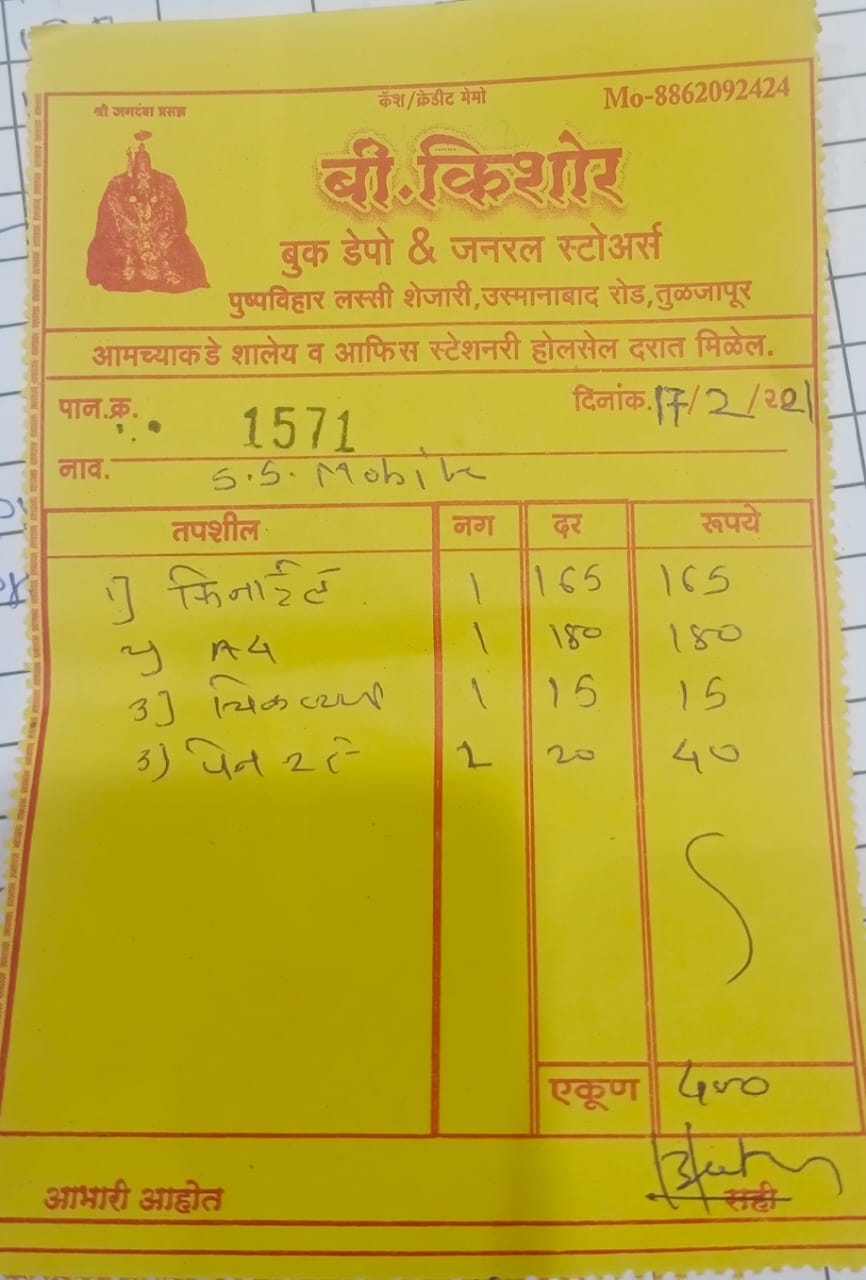 श्री जगदंबा प्रसन्न
कॅश/क्रेडीट मेमो
Mo-8862092424
बी.किशोर
बुक डेपो & जनरल स्टोअर्स
पुष्पविहार लस्सी शेजारी,उस्मानाबाद रोड,तुळजापूर
आमच्याकडे शालेय व आफिस स्टेशनरी होलसेल दरात मिळेल.
पान.क्र. 1571 दिनांक.17/2/२०21
नाव. S.S. Mobile
तपशील नग दर रूपये
1] 1 165 165
२) A4 1 180 180
3] 1 15 15
3) 2 20 40
एकूण 400
आभारी आहोत
सही